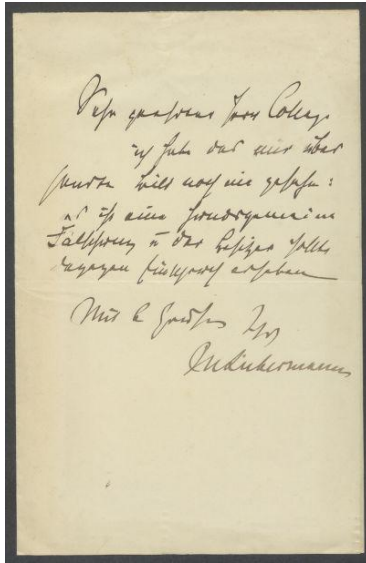 Sehr geehrter Herr College
ich habe das mir über
sandte Bild noch nie gesehen:
es ist eine hundsgemeine
Fälschung u der Besitzer sollte
dagegen Einspruch erheben
Mit b Grüßen Ihr
MLiebermann